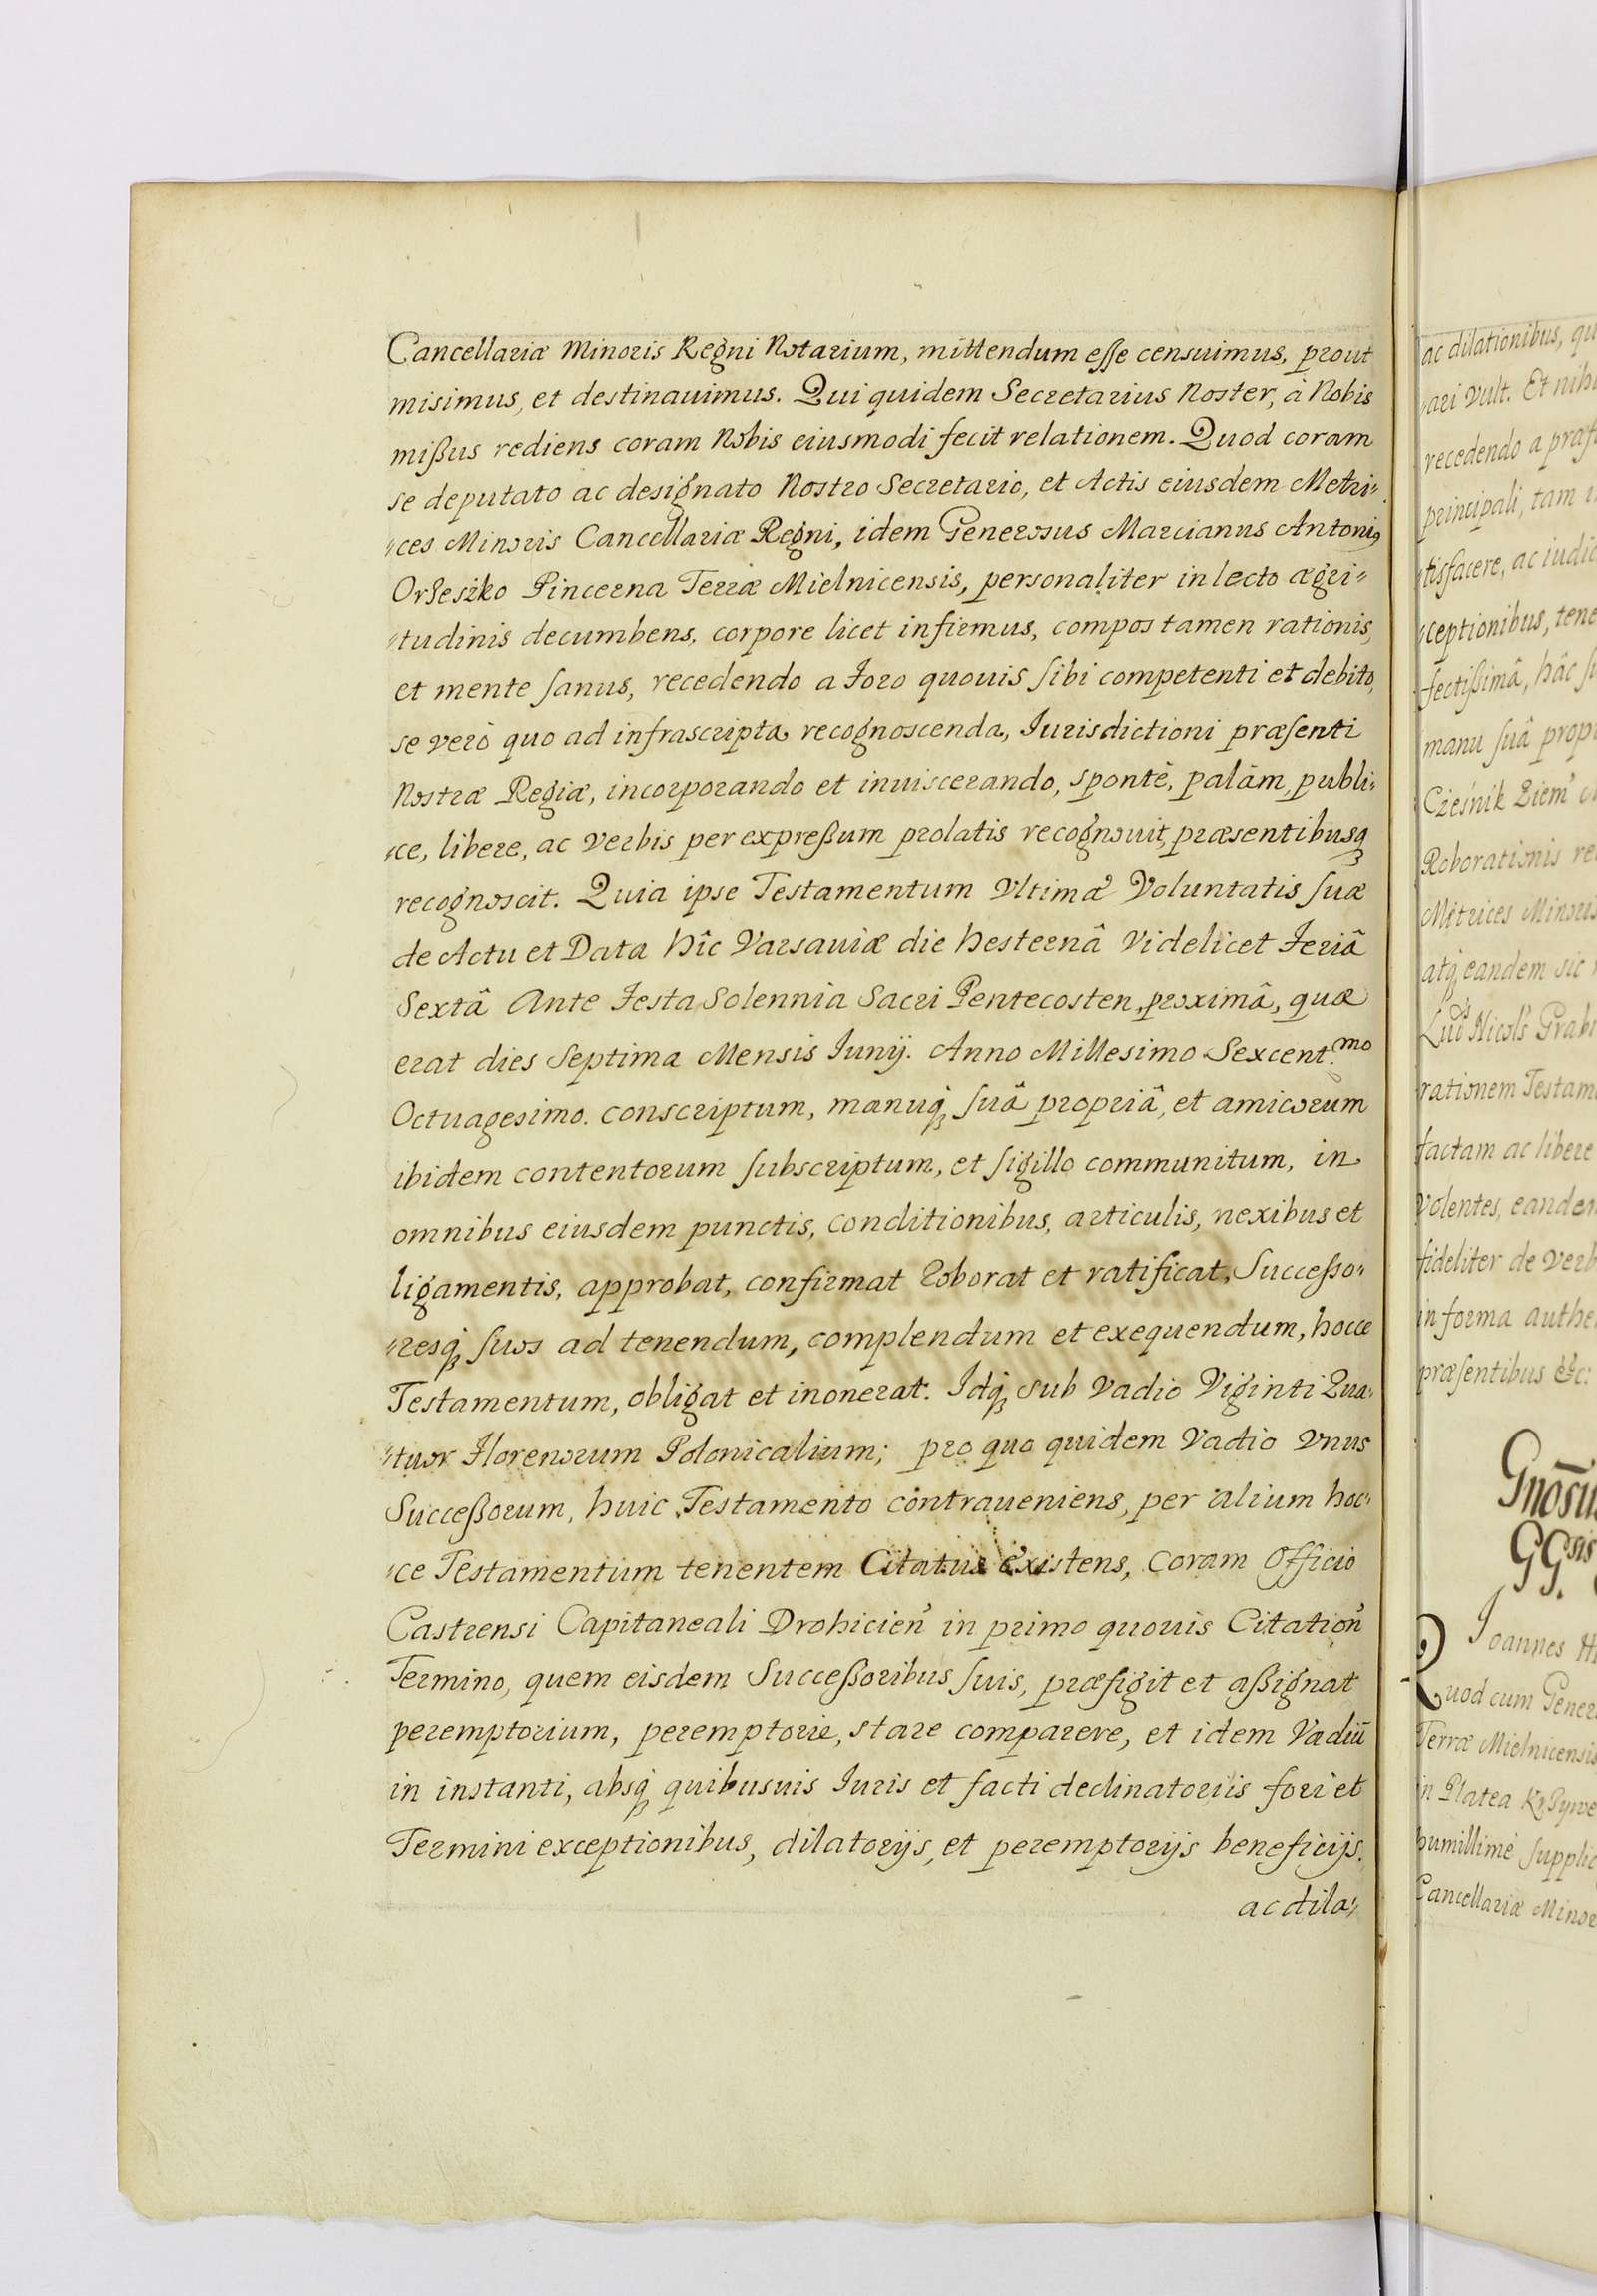 Cancellariæ Minoris Regni Notarium, mittendum esse censuimus, prout
misimus, et destinauimus. Qui quidem Secretarius Noster, à Nobis
mißus rediens coram Nobis eiusmodi fecit relationem. Quod coram
se deputato ac designato Nostro Secretario, et Actis eiusdem Metri〃
〃ces Minoris Cancellariæ Regni, idem Generosus Marcianus Antoni9
Orzeszko Pincerna Terræ Mielnicensis, personaliter in lecto ægri〃
〃tudinis decumbens, corpore licet infirmus, compos tamen rationis,
et mente sanus, recedendo a Foro quouis sibi competenti et debito,
se verò quo ad infrascripta recognoscenda, Iurisdictioni præsenti
Nostræ Regiæ, incorporando et inuiscerando, spontè, palàm, publi〃
〃ce, libere, ac verbis per expreßum prolatis recognouit, præsentibusq́
recognoscit. Quia ipse Testamentum Vltimæ Voluntatis suæ
de Actu et Data hîc Varsauiæ die hesternâ Videlicet Feriâ
Sextâ Ante Festa Solennia Sacri Pentecosten, proximâ, quæ
erat dies Septima Mensis Iunij. Anno Millesimo Sexcent.mo
Octuagesimo. conscriptum, manuq́ suâ propriâ, et amicorum
ibidem contentorum subscriptum, et sigillo communitum, in
omnibus eiusdem punctis, conditionibus, articulis, nexibus et
ligamentis, approbat, confirmat roborat et ratificat, Succeßo〃
〃resq́ suos ad tenendum, complendum et exequendum, hocce
Testamentum, obligat et inonerat. Idq́ sub Vadio Viginti Qua〃
〃tuor Florenorum Polonicalium; pro quo quidem Vadio Vnus
Succeßorum, huic Testamento contraueniens, per alium hoc〃
〃ce Testamentum tenentem Citatus existens, coram Officio
Castrensi Capitaneali Drohicień in primo quouis Citatioń
Termino, quem eisdem Succeßoribus suis, præfigit et aßignat
peremptorium, peremptorie, stare comparere, et idem Vadiū
in instanti, absq́ quibusuis Iuris et facti declinatoriis fori et
Termini exceptionibus, dilatorijs, et peremptorijs beneficijs.
ac dila〃
ac dilationibus, qu
〃ari vult. Et nihi
recedendo a præf
principali, tam
〃tisfacere, ac iudic
〃ceptionibus, tene
fectißimâ, hâc su
manu suâ propr
Cześnik Ziem'
Roborationis re
Metrices Minoris
atq́ eandem sic
Grabi
rationem Testam
factam ac libere
volentes, eandem
fideliter de verb
in forma authe
præsentibus &c:
Gnōsu
GGsis
Ioannes
Quod cum Gener
Terræ Mielnicensis
in Platea
humillimè supplic
Cancellariæ Minor